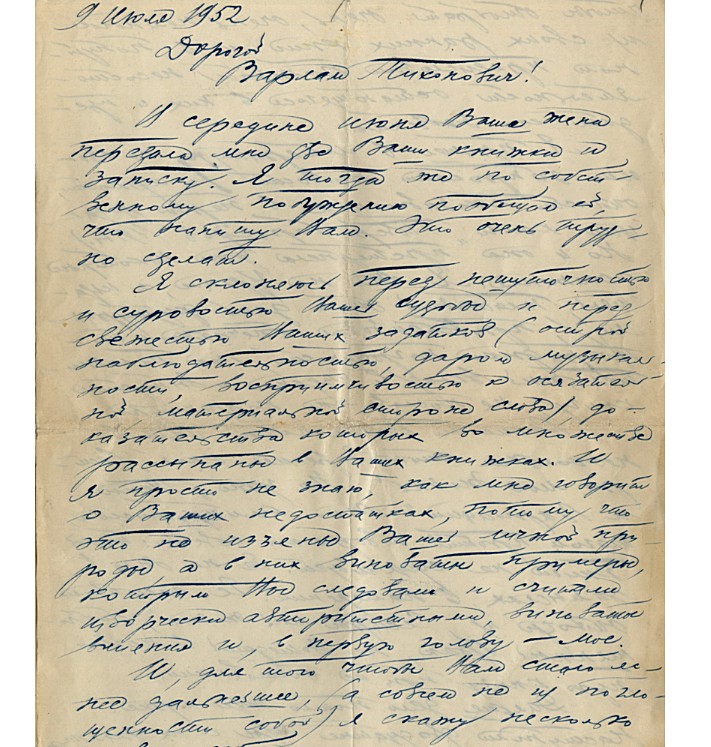 9 июля 1952
Дорогой
Варлам Тихонович!
В середине июня Ваша жена
передала мне две Ваши книжки и
записку. Я тогда же по собст-
венному побуждению пообещал ей,
что напишу Вам. Это очень труд-
но сделать.
Я склоняюсь перед нешуточностью
и суровостью Вашей судьбы и перед
свежестью Ваших задатков (острой
наблюдательностью, даром музыкаль-
ности, восприимчивостью к осязатель-
ной, материальной стороне слова), до-
казательства которых во множестве
рассыпаны в Ваших книжках. И
я просто не знаю, как мне говорить
о Ваших недостатках, потому что
это не изъяны Вашей личной при-
роды, а в них виноваты примеры,
которым Вы следовали и считали
творчески авторитетными, виноваты
влияния и, в первую голову – мое.
И, для того чтобы Вам стало яс-
нее дальнейшее, (а совсем не из погло-
щенности собой) я скажу несколько